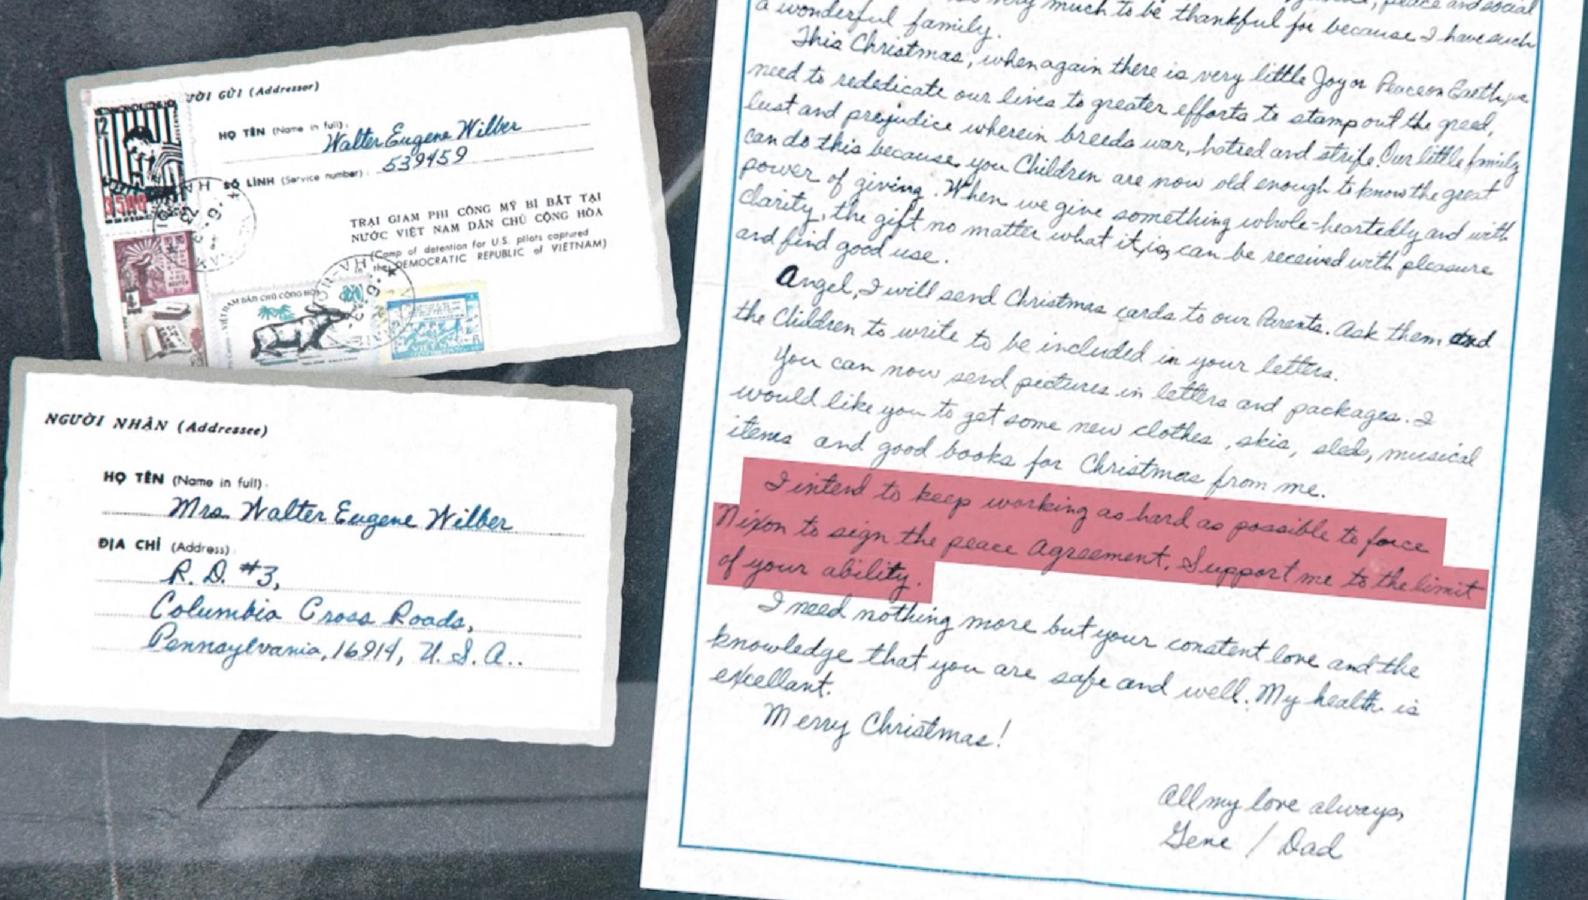 ƯỜI GỬI (Addressor)
HỌ TÊN (Name in full):
Walter Eugene Wilber
SỐ LÍNH (Service number): 539459
TRẠI GIAM PHI CÔNG MỸ BỊ BẮT TẠI
NƯỚC VIỆT NAM DÂN CHỦ CỘNG HÒA
(Camp of detention for U.S. pilots captured
the DEMOCRATIC REPUBLIC of VIETNAM)
VIỆT NAM DÂN CHỦ CỘNG HÒA
NGƯỜI NHẬN (Addressee)
HỌ TÊN (Name in full):
Mrs. Walter Eugene Wilber
ĐỊA CHỈ (Address):
R. D. #3,
Columbia Cross Roads,
Pennsylvania, 16914, U. S. A..
very much to be thankful for because I have such
a wonderful family.
This Christmas, when again there is very little Joy or Peace on Earth, we
need to rededicate our lives to greater efforts to stamp out the greed,
lust and prejudice wherein breeds war, hatred and strife. Our little family
can do this because you Children are now old enough to know the great
power of giving. When we give something whole-heartedly and with
clarity, the gift no matter what it is, can be received with pleasure
and find good use.
Angel, I will send Christmas cards to our Parents. Ask them and
the Children to write to be included in your letters.
You can now send pictures in letters and packages. I
would like you to get some new clothes, skis, sleds, musical
items and good books for Christmas from me.
I intend to keep working as hard as possible to force
Nixon to sign the peace agreement. Support me to the limit
of your ability.
I need nothing more but your constent love and the
knowledge that you are safe and well. My health is
excellant.
Merry Christmas!
All my love always,
Gene / Dad